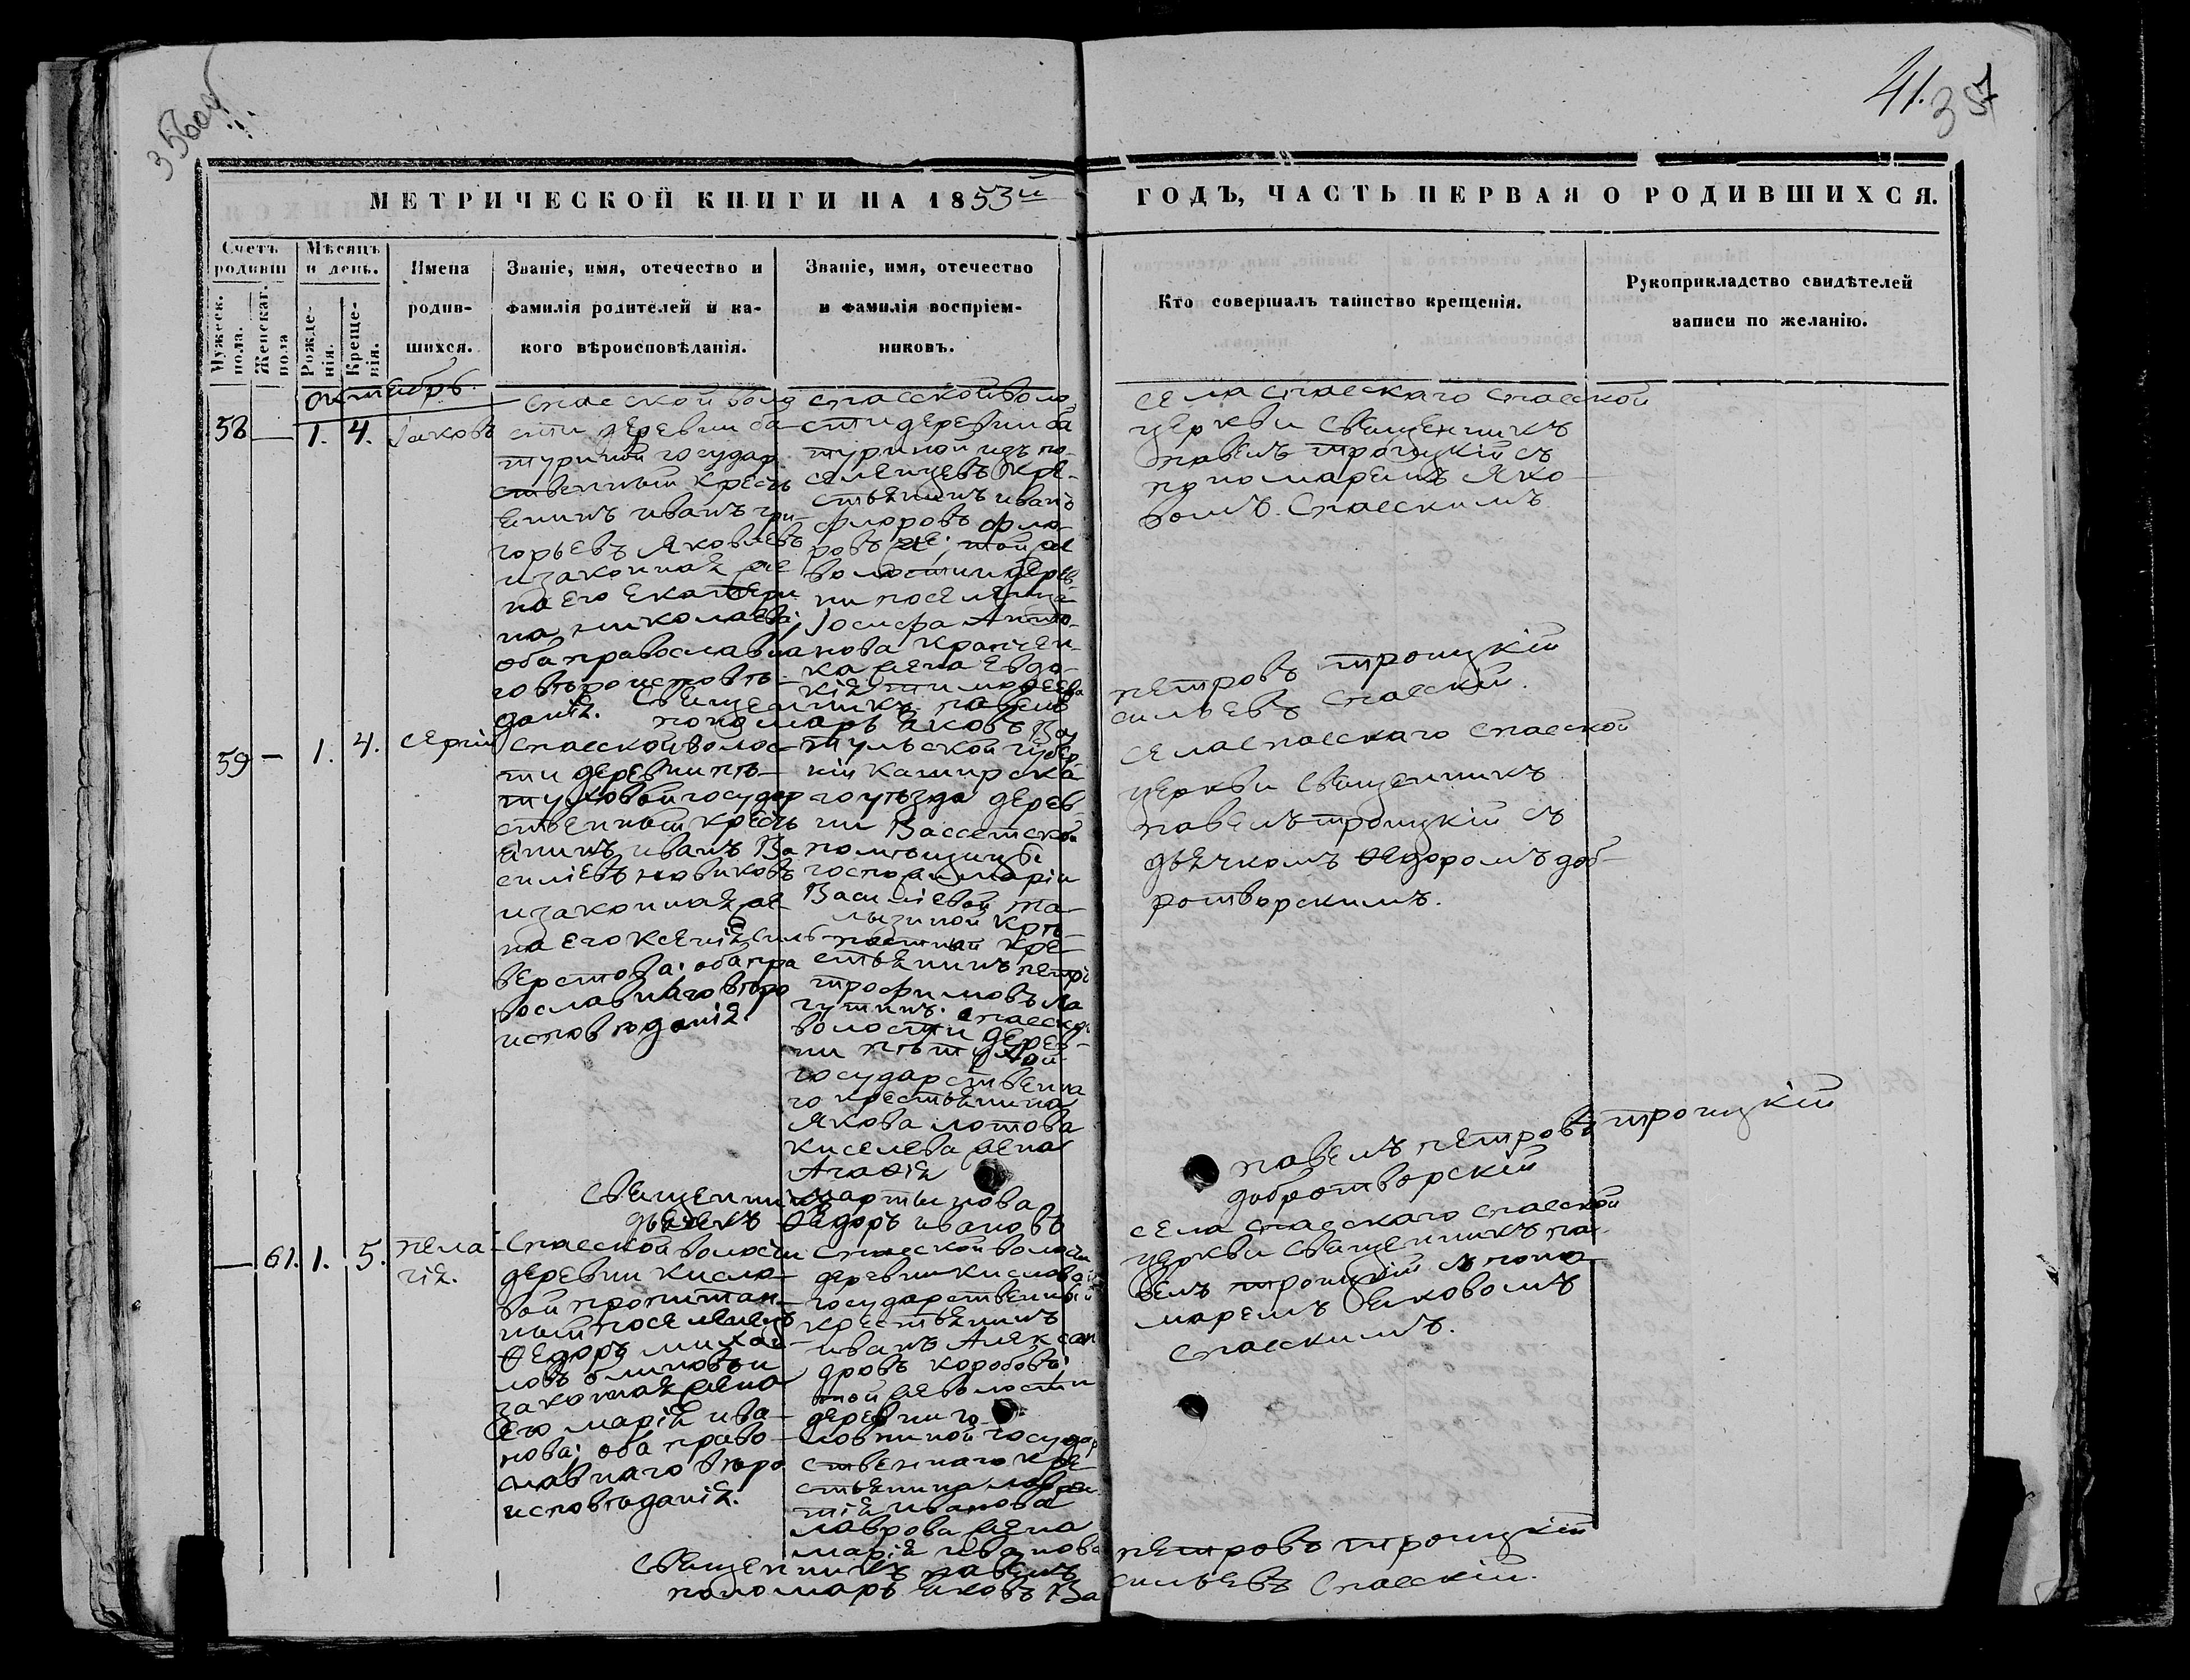 356об
41.
387
МЕТРИЧЕСКОЙ КНИГИ НА 1853й ГОДЪ, ЧАСТЬ ПЕРВАЯ О РОДИВШИХСЯ.
Счетъ родивш
Мужеск. пола.
Женскаг. пола
Мѣсяцъ и день.
Рожде-
нія.
Креще-
нія.
Имена
родив-
шихся.
Званіе, имя, отечество и
фамилія родителей и ка-
кого вѣроисповѣданія.
Званіе, имя, отечество
и фамилія воспріем-
никовъ.
Кто совершалъ таинство крещенія.
Рукоприкладство свидѣтелей
записи по желанію.
октябрь.
58 — 1. 4. Іаковъ
спасской воло
сти деревни ба
туриной государ
ственный кресть
янинъ иванъ гри-
горьевъ Яковлевъ
и законная же
на его Екатери
на николаева;
оба православна
го вѣроисповѣ-
данія.
спасской воло
сти деревни ба
туриной изъ по-
селенцевъ кре-
стьянинъ иванъ
флоровъ фло-
ровъ же; той же
волости и дерев
ни поселенца
Іосифа Анто-
нова Крапчен-
ка жена Евдо-
кія тимофеева
села спасскаго спасской
церкви священникъ
павелъ троицкій съ
пономаремъ Яко-
вомъ Спасскимъ
священникъ павелъ петровъ троицкій
пономарь Яковъ Васильевъ Спасскій.
59 — 1. 4. сергій
спасской волос-
ти деревни пѣ-
туховой государ
ственный кресть
янинъ иванъ Ва
силіевъ новиковъ
и законная же
на его Ксенія силь
верстова; оба пра
вославнаго вѣро
исповѣданія.
тульской губер-
ніи каширска
го уѣзда дерев
ни Вассетской
помѣщицы
госпожи маріи
Васильевой та-
лызиной крѣ-
постной кре
стьянинъ петръ
трофимовъ Ла
гутинъ. спасской
волости дерев-
ни пѣтуховой
государственна
го крестьянина
Якова лотова
киселева жена
Агафія
мартынова
села спасскаго спасской
церкви священникъ
павелъ троицкій съ
дьячкомъ Ѳедоромъ доб-
ротворскимъ.
священникъ павелъ петровъ троицкій
дьячекъ Ѳедоръ ивановъ добротворскій
— 61. 1. 5. пела-
гія.
Спасской волости
деревни Кисло-
вой пропитан-
ный поселенецъ
Ѳедоръ михай-
ловъ блиновъ и
законная жена
Его марія ива-
нова; оба право-
славнаго вѣро
исповѣданія.
спасской волости
деревни кисловой
государственный
крестьянинъ
иванъ Алексан
дровъ коробовъ;
той же волости
деревни го-
ловниной государ
ственнаго кре
стьянина лаврен
тія иванова
лаврова жена
марія иванова
села спасскаго спасской
церкви священникъ па-
велъ троицкій съ поно
маремъ Яковомъ
спасскимъ.
священникъ павелъ петровъ троицкій
пономарь Яковъ Васильевъ Спасскій.